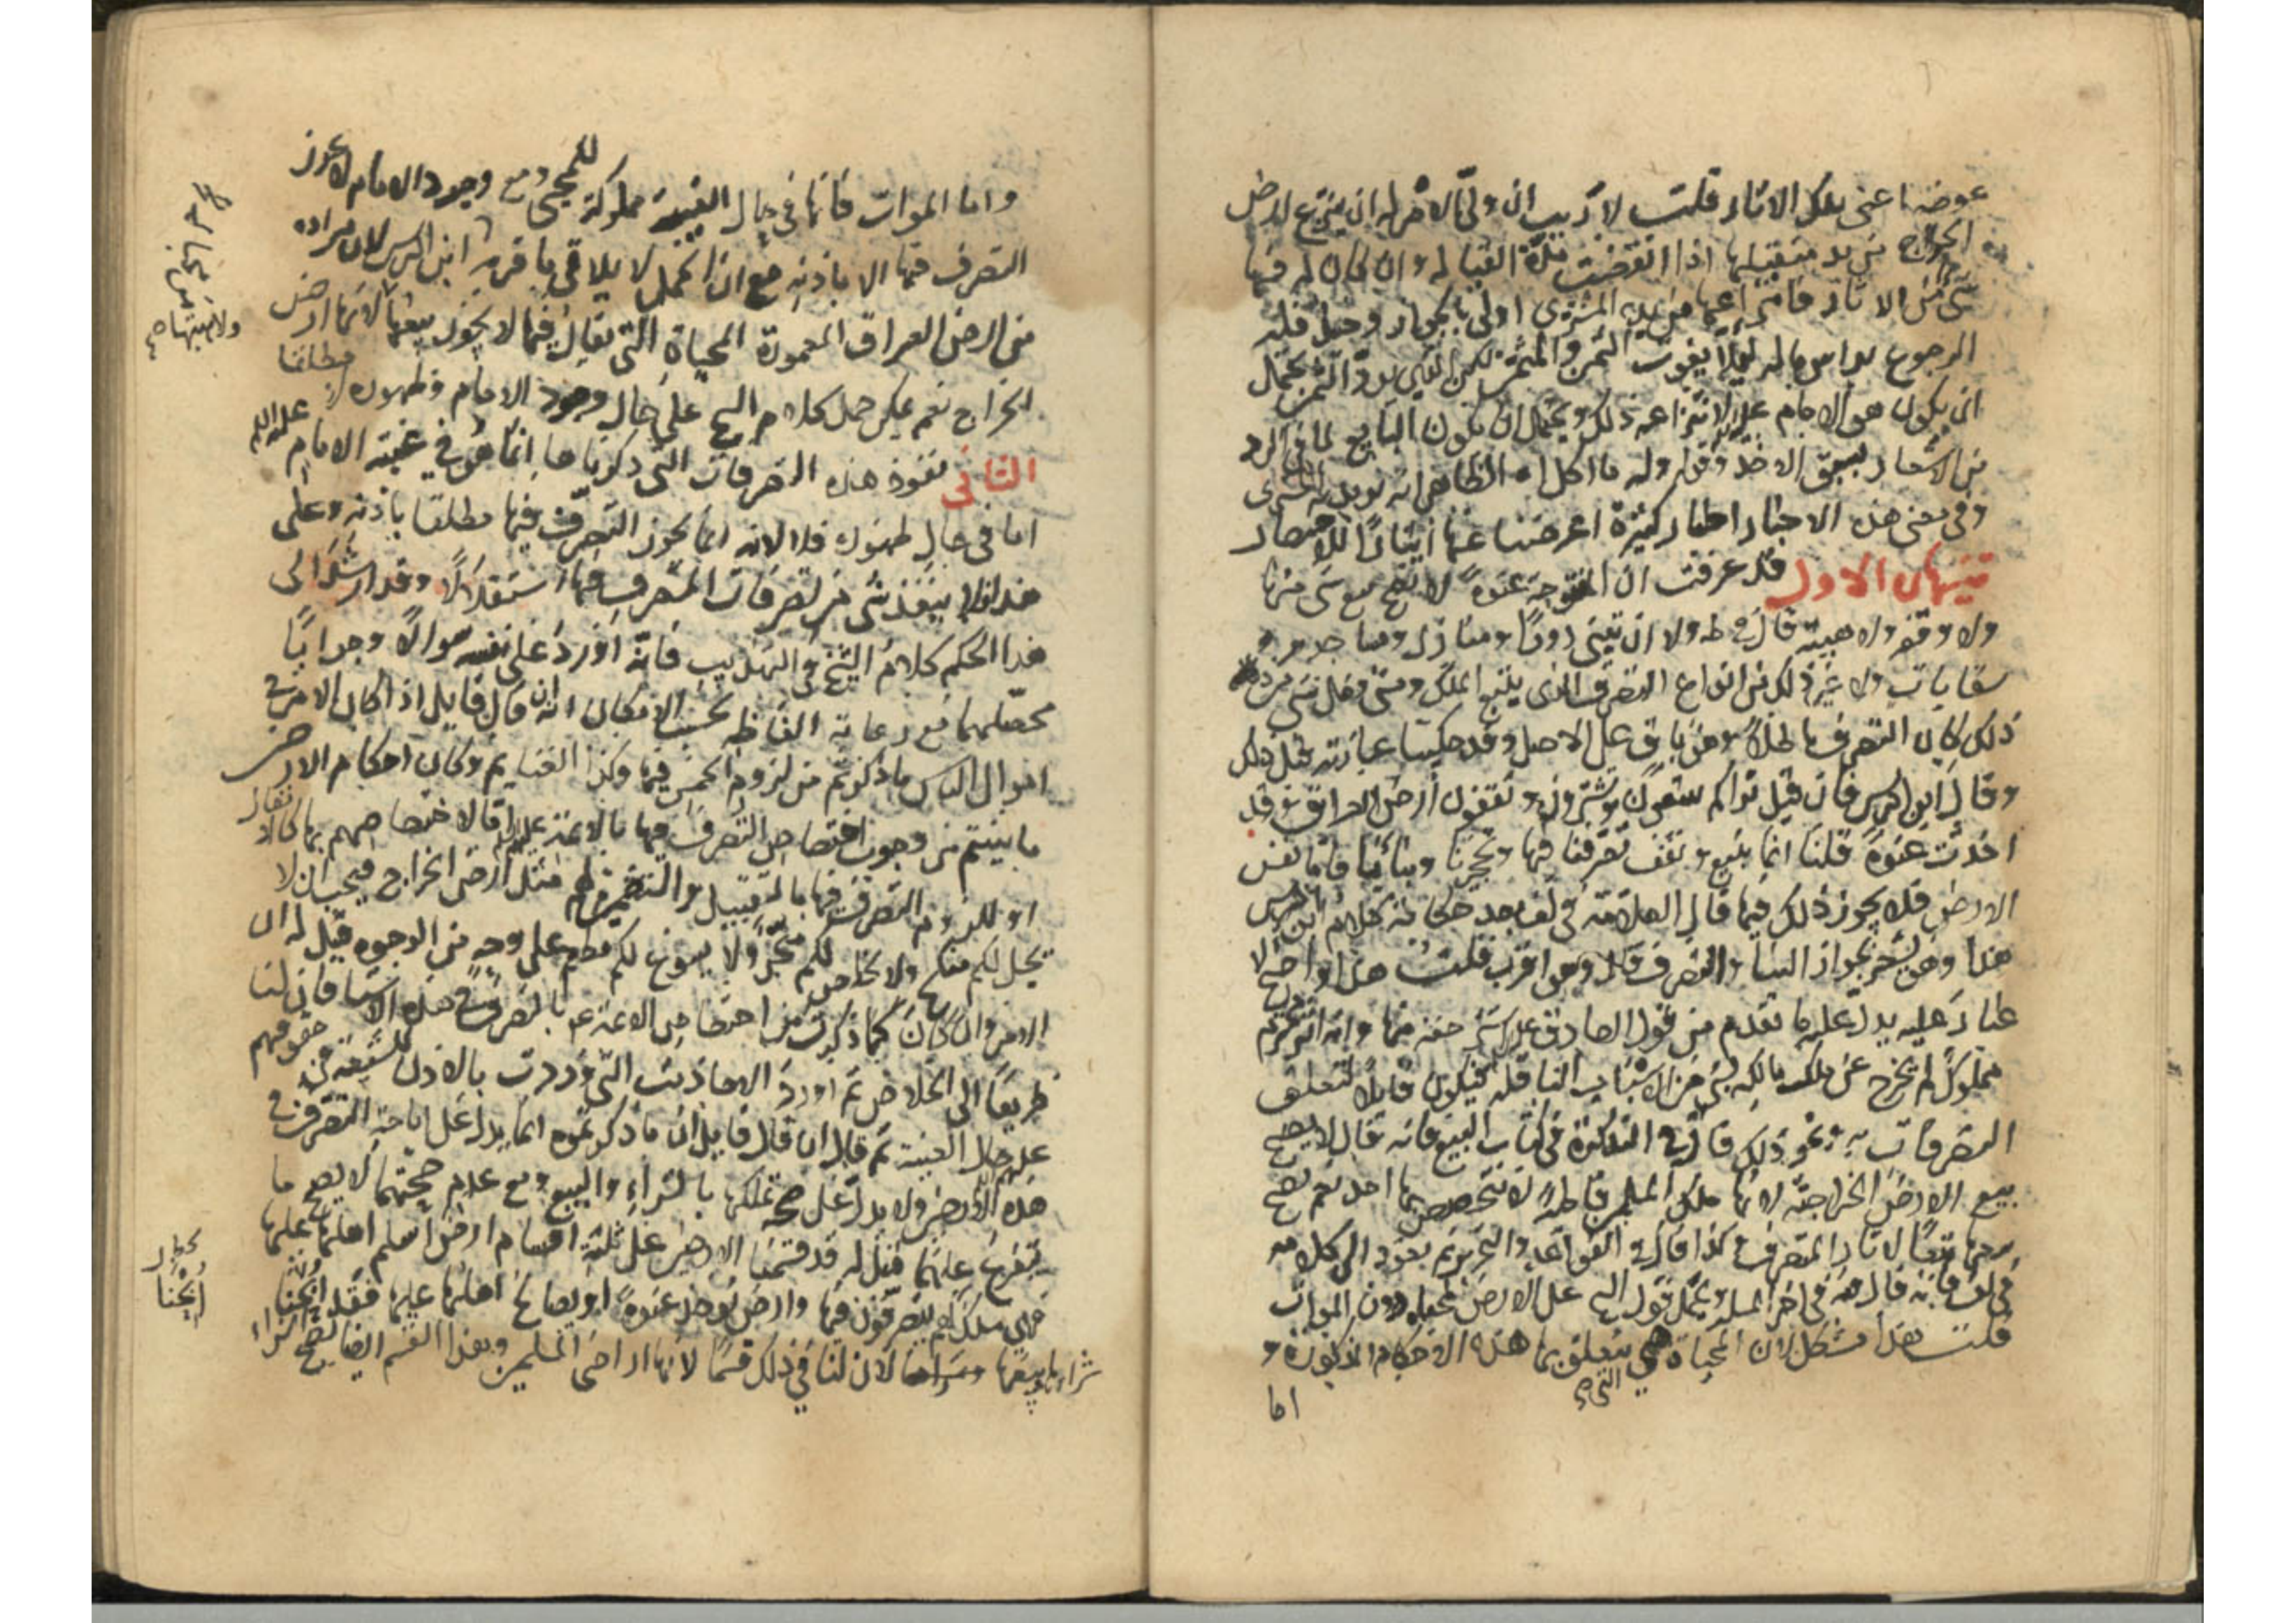 عوضنا عنى بملك الاثار قلت لا ريب ان ولى الامر له ان ينتزع ارض
الخراج من يد متقبلها اذا انقضت مدة القبالة وان كان له فيها
شئ من الاثار فانتزاعها من يد المشترى اولى بالجواز وحينئذ فله
الرجوع براس ماله لئلا يفوت الثمن والمثمن لكن الذى يرد الثمن يحتمل
ان يكون هو الامام عليه لانتزاعه ذلك ويحتمل ان يكون البايع لما فى الرد
من الاشعار بسبق الاخذ وقوله وله ما اكل اه الظاهر انه يريد به المشترى
وفى معنى هذه الاخبار اخبار كثيرة اعرضنا عنها ايثارا للاختصار
تنبيهان الاول قد عرفت ان المفتوحة عنوة لا يصح بيع شئ منها
ولا وقفه ولا هبته قال فى ط ولا ان تبنى دورا ومنازل ومساجد و
سقايات ولا غير ذلك من انواع التصرف الذى يتبع الملك ومتى فعل شئ من
ذلك كان التصرف باطلا وهو باق على الاصل وقد حكينا عبارته قبل ذلك
وقال ابن ادريس فان قيل نراكم تبيعون وتشترون وتقفون ارض العراق وقد
اخذت عنوة قلنا انما نبيع ونقف تصرفنا فيها وتحجيرنا وبنائنا فاما نفس
الارض فلا يجوز ذلك فيها قال العلامة فى لف بعد حكاية كلام ابن ادريس
هذا وهو يشعر بجواز البناء والتصرف قال وهو اقرب قلت هذا واضح لا
غبار عليه يدل عليه ما تقدم من قول الصادق عليه السلم اشتر حقه منها وانه
مملوك لم يخرج عن ملك مالكه بشئ من الاسباب الناقلة فيكون قابلا لتعلق
التصرفات به ونحو ذلك قال فى التذكرة فى كتاب البيع فانه قال لا يصح
بيع الارض الخراجية لانها ملك المسلمين قاطبة لا يتخصص بها احد نعم يصح
بيعها تبعا لاثار المتصرف وكذا قال فى القواعد والتحرير ثم نعود الى كلامه
فى لف فانه قال فى اخر المسئلة ويحمل قول الشيخ على الارض المحياة دون الموات
قلت هذا مشكل لان المحياة هى التى يتعلق بها هذه الاحكام المذكورة و
اما
واما الموات فانها فى حال الغيبة مملوكة للمحيى ومع وجود الامام لا يجوز
التصرف فيها الا باذنه مع ان الحمل لا يلاقى ما قربه ابن ادريس لان مراده
من ارض العراق المعمورة المحياة التى يقال فيها لا يجوز بيعها لانها ارض
الخراج نعم يمكن حمل كلام الشيخ على حال وجود الامام وظهوره لا مطلقا
الثانى نفوذ هذه التصرفات التى ذكرناها انما هو فى غيبة الامام عليه السلم
اما فى حال ظهوره فلا لانه انما يجوز التصرف فيها مطلقا باذنه وعلى
هذا فلا ينفذ شئ من تصرفات المتصرف فيها استقلالا وقد ارشد الى
هذا الحكم كلام الشيخ فى التهذيب فانه اورد على نفسه سوالا وجوابا
محصلهما مع رعاية الفاظه بحسب الامكان انه ان قال قايل اذا كان الامر فى
اموال الناس ما ذكرتم من لزوم الخمس فيها وكذا الغنايم وكان احكام الارض
ما بينتم من وجوب اختصاص التصرف فيها بالائمة عليهم السلم اما لاختصاصهم بها كالانفال
او للزوم التصرف فيها بالتقبيل والتضمين لهم مثل ارض الخراج فيجب ان لا
يحل لكم منكح ولا يخلص لكم متجر ولا يسوغ لكم مطعم على وجه من الوجوه قيل له ان
الامر وان كان كما ذكرت من اختصاص الائمة ع بالتصرف فى هذه الاشيا فان لنا
طريقا الى الخلاص ثم اورد الاحاديث التى وردت بالاذن للشيعة فى حقوقهم
على حال الغيبة ثم قال ان قال قايل ان ما ذكرتموه انما يدل على اباحة التصرف فى
هذه الارض ولا يدل على صحة تملكها بالشراء والبيع ومع عدم صحتهما لا يصح ما
يتفرع عليهما قيل له قد قسمنا الارض على ثلثة اقسام ارض اسلم اهلها عليها
فهى ملك لهم يتصرفون فيها وارض تؤخذ عنوة او يصالح اهلها عليها فقد ابحنا
شراءها وبيعها لان لنا فى ذلك قسما لانها اراضى المسلمين وهذا القسم ايضا يصح الشراء
ابحنا